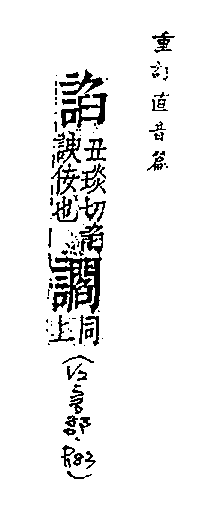 重訂直音篇
諂丑琰切諂
諛佞也
讇同
上
言部